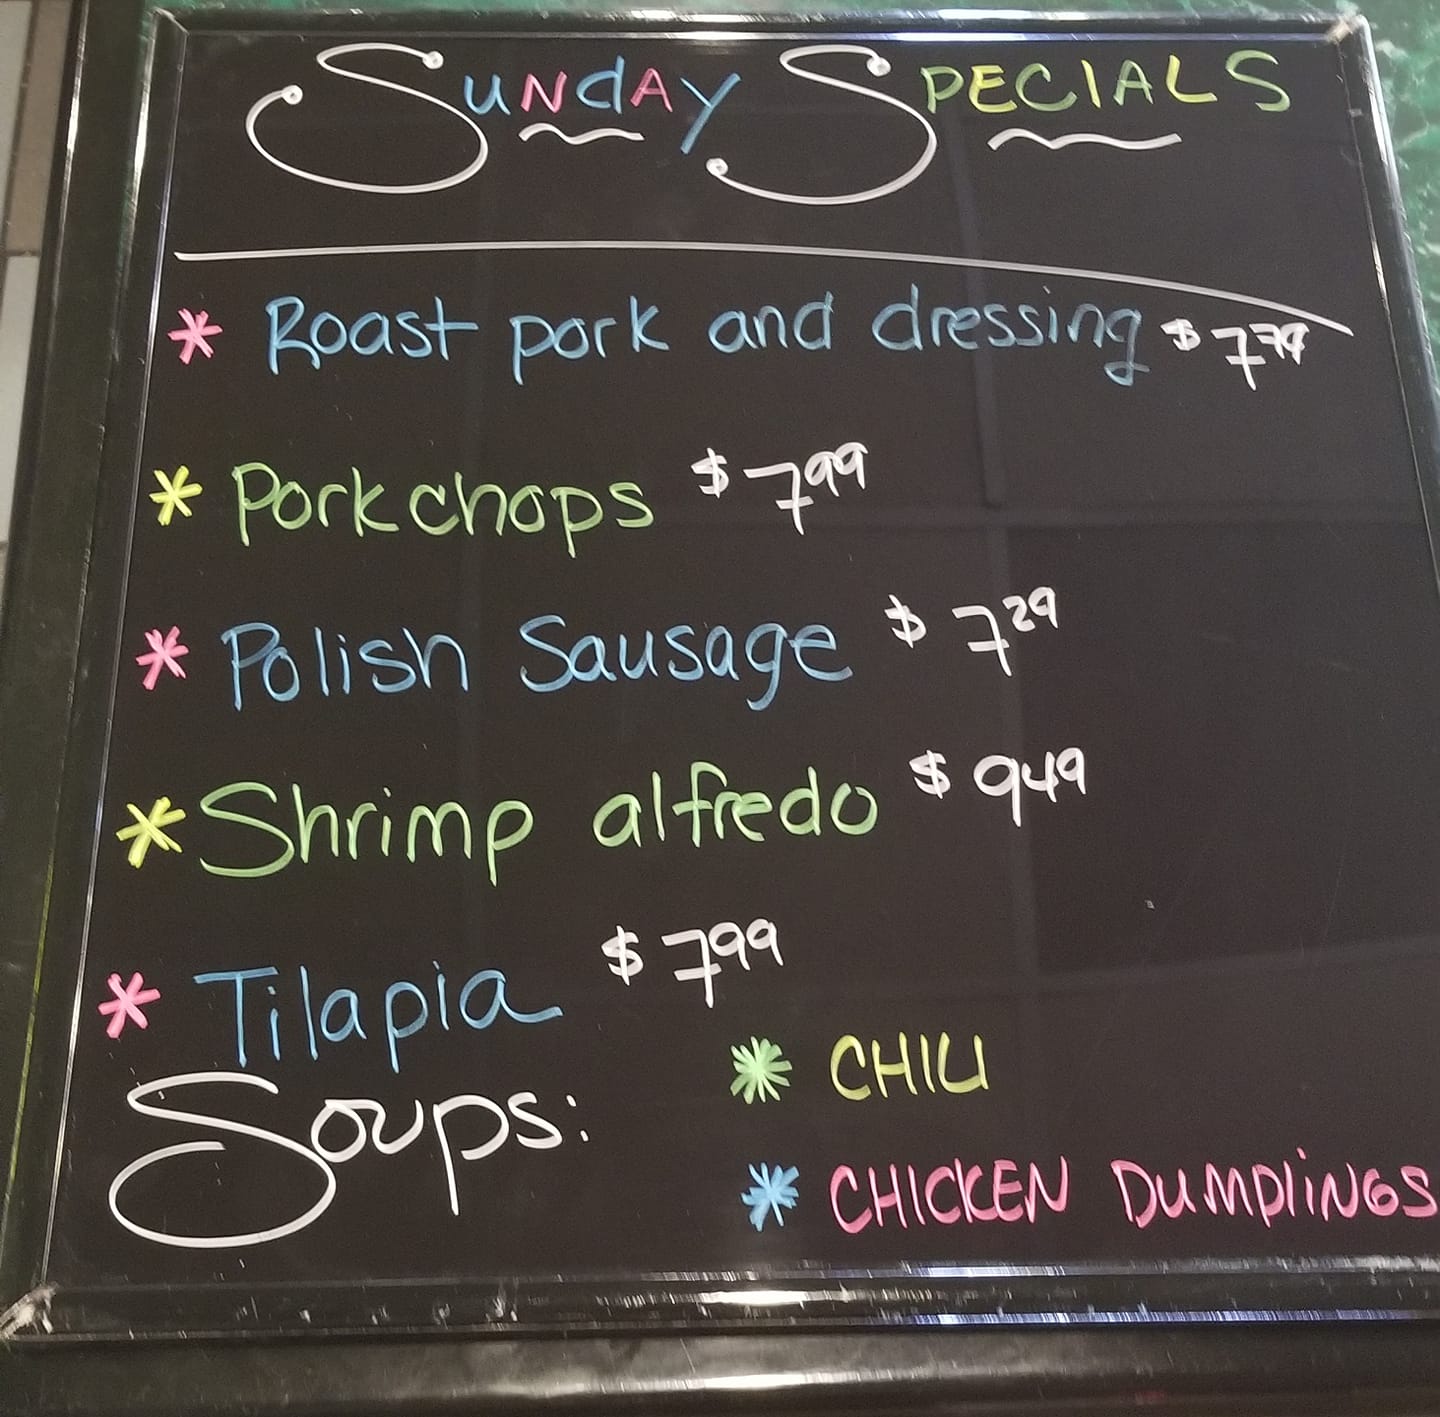 SUNdAy SPECIALS
* Roast pork and dressing $7.79
* Porkchops $7.99
* Polish Sausage $7.29
* Shrimp alfredo $9.49
* Tilapia $7.99
Soups:
* CHILI
* CHICKEN DUMPLiNGS